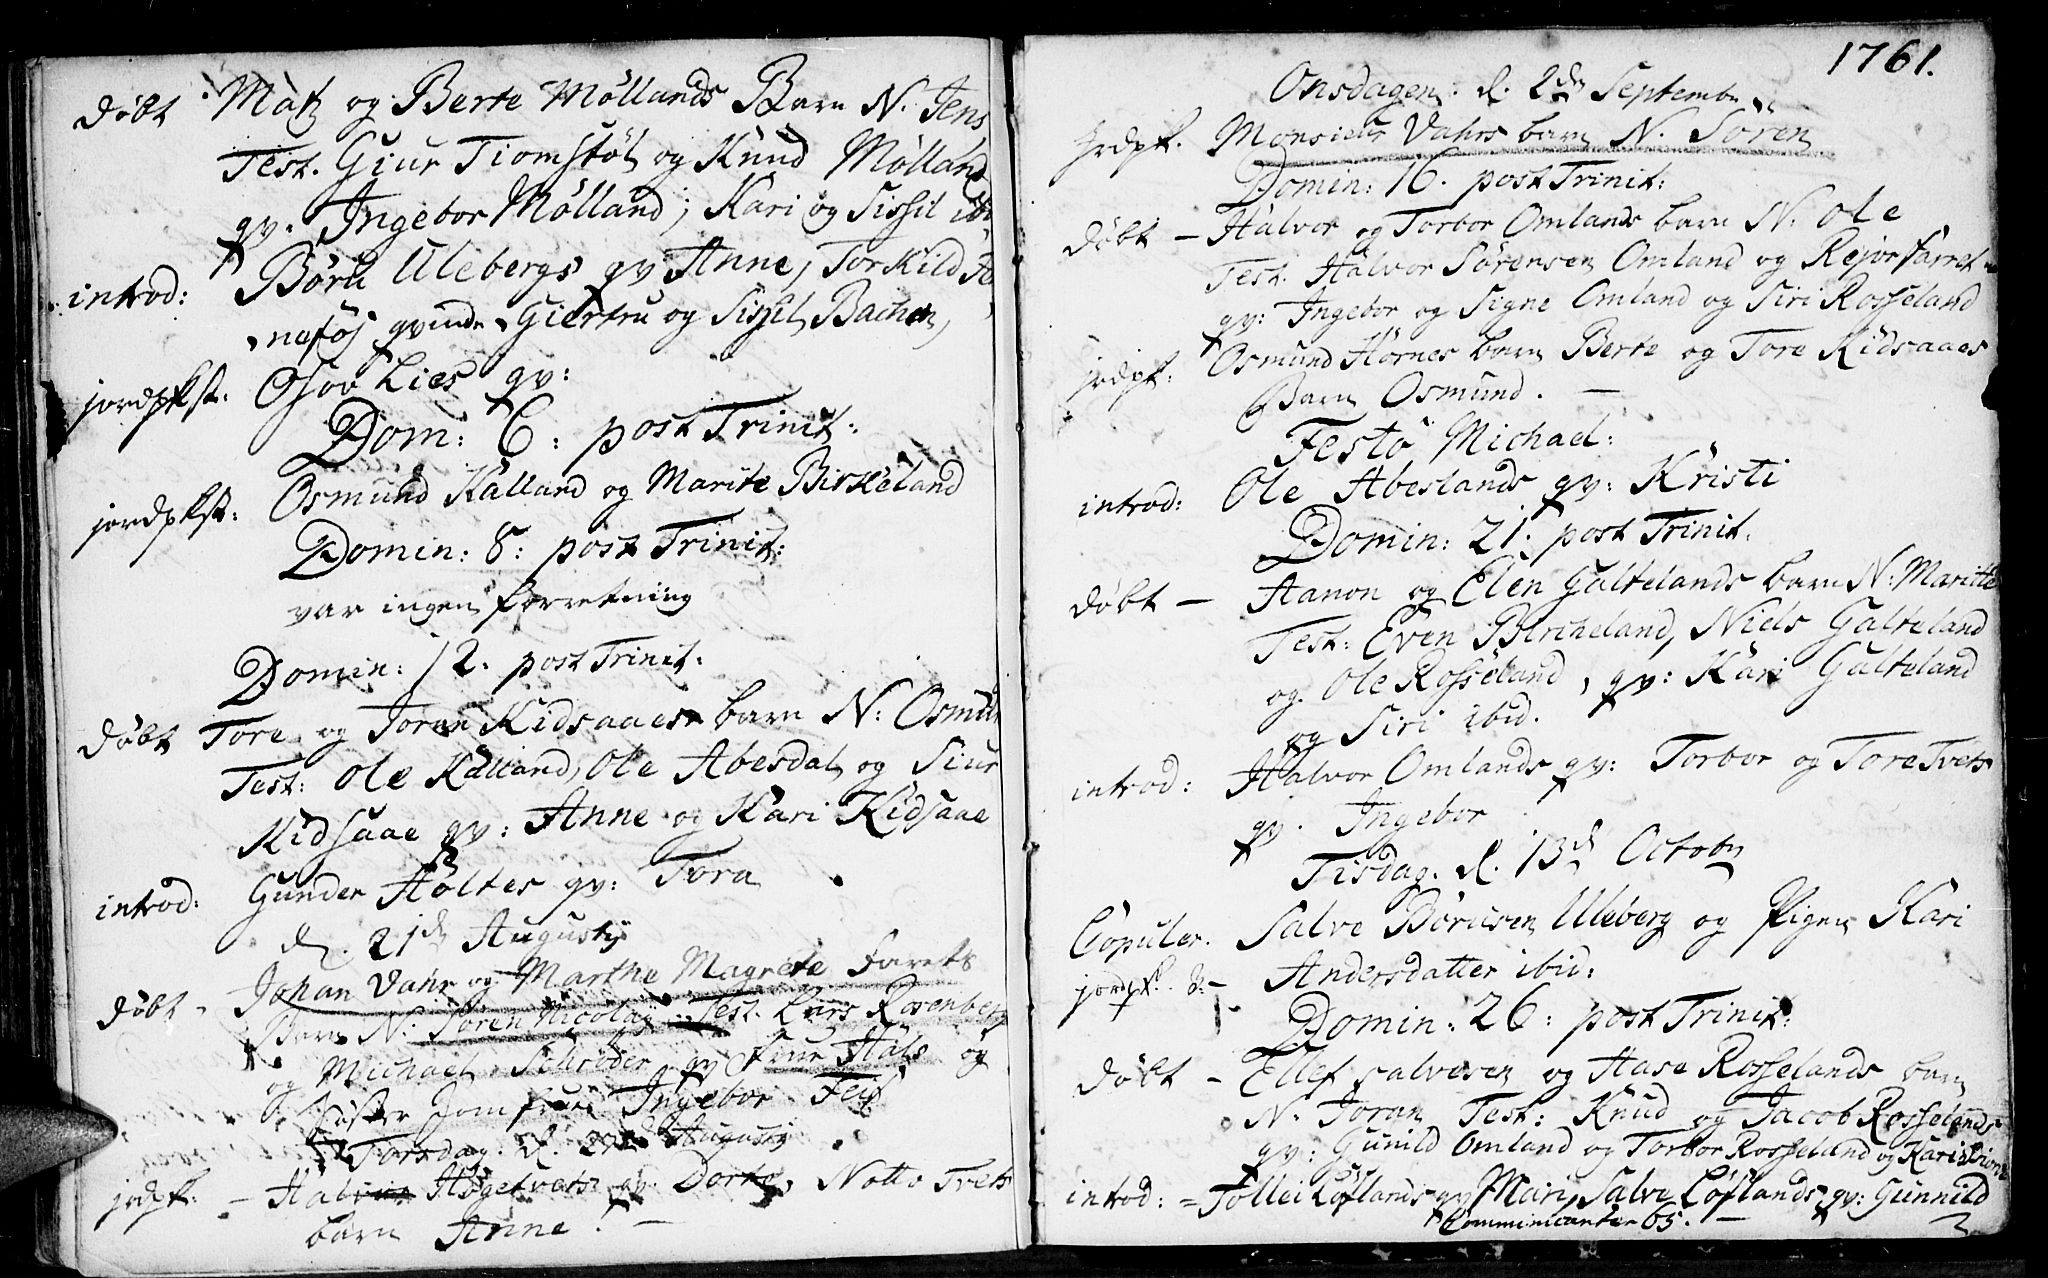 døbt Matz og Berte Møllands Barn N. Jens
Test. Giur Tiomstøl og Knud Mølland
qv. Ingebor Mølland; Kari og Sissil ibid
introd: Børu Ulebergs qv Anne, Torkild
nesføs qvinde, Giertru og Sissel Bachen,
jordpkst: Osov Lies qv:
Dom: 6: post Trinit:
jordpkst: Osmund Kalland og Marite Birkeland
Domin: 8: post Trinit:
var ingen forretning
Domin: 12. post Trinit:
døbt Tore og Joran Kidsaaes barn N: Osmund
Test: Ole Kalland, Ole Abesdal og Siur
Kidsaae qv: Anne og Kari Kidsaae
introd: Gunder Holtes qv: Tora
d. 21de Augustij
døbt - Johan Vahr og Marthe Magrete Farets
Barn N: Søren Nicolay. Test. Lars Rosenberg
og Michael Schrøder qv Siur Hals og
Søster Jomfrue Ingebor Feif
Torsdag. d. Augusty
jrdpk: - Halvor Høgetveits qv. Dorte, Notto Tveits
barn Anne. -
1761.
Onsdagen: d. 2den Septembr
jrdpk. Monsieur Vahrs barn N. Søren
Domin: 16. post Trinit:
døbt - Halvor og Torbor Omlands barn N. Ole
Test. Halvor Sørensen Omland og Rejor Farret
qv: Ingebor og Signe Omland og Siri Rosseland
jrdpk: Osmund Hornes barn Berte og Tore Kidsaaes
Barn Osmund. -
Festo Michael:
introd: Ole Abeslands qv: Kristi
Domin: 21: post Trinit.
døbt - Hanon og Elen Galtelands barn N: Maritte
Test: Even Bircheland, Niels Galteland
og Ole Rosseland, qv: Kari Galteland
og Siri ibid.
introd: Halvor Omlands qv: Torbor og Tore Tveits
qv. Ingebor
Tisdag. d. 13de Octobr
Copuler. Salve Børusen Uleberg og Pigen Kari
jordpk. Andersdatter ibid:
Domin: 26: post Trinit:
døbt - Ellef Salvesen og Aase Rosselands barn
N. Joran Test: Knud og Jacob Rosselands
qv: Gunild Omland og Torbor Rosseland og Kari
introd: = Follei Løflands qv Mari, Salve Løflands qv: Gunnild
Comminicanter 65. -